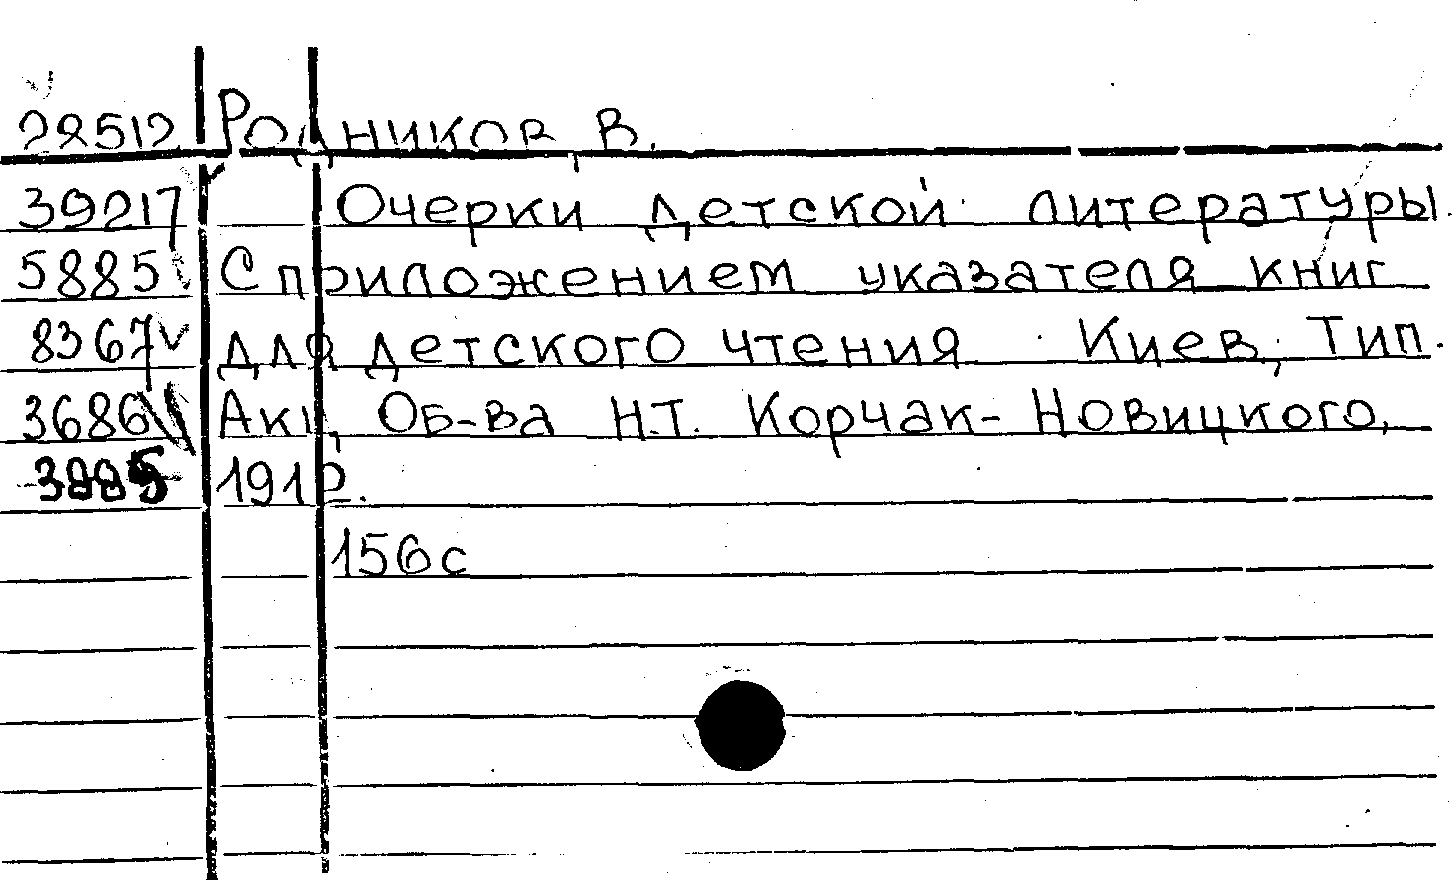 28512 Родников, В.
39217 Очерки детской литературы.
5885 С приложением указателя книг
8367 для детского чтения. Киев, Тип.
3686 Акц. Об-ва Н.Т. Корчак-Новицкого,
1912.
156 с